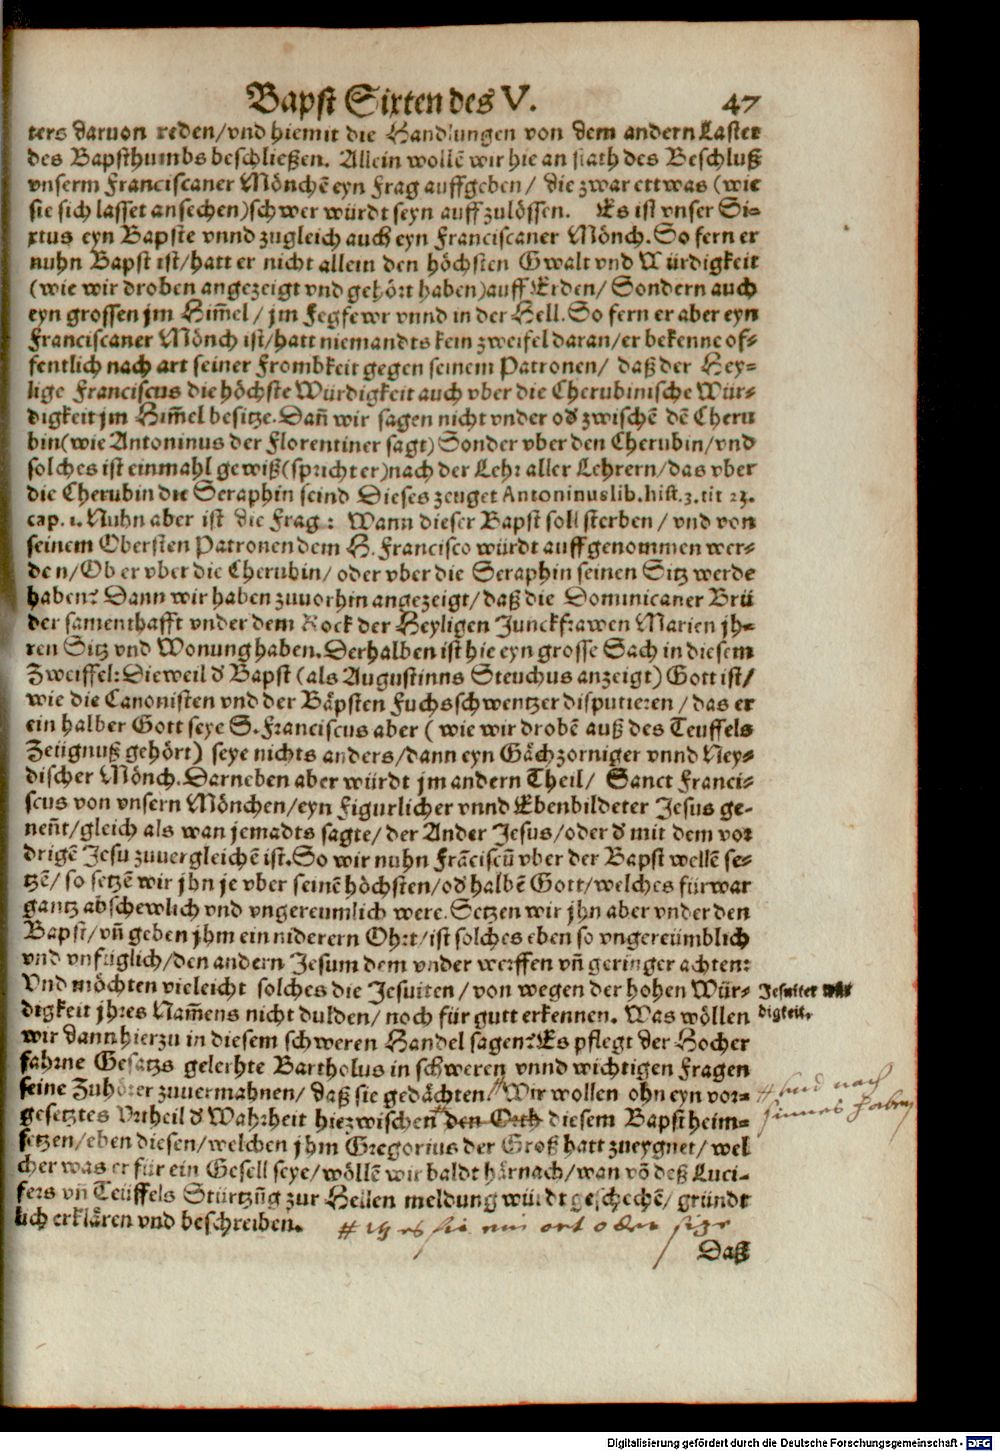 Bapst Sixten des V. 47
ters daruon reden/vnd hiemit die Handlungen von dem andern Laster
des Bapsthumbs beschließen. Allein wollē wir hie an stath des Beschluß
vnserm Franciscaner Mönchē eyn Frag auffgeben/ die zwar ettwas (wie
sie sich lasset ansechen)schwer würdt seyn auff zulössen. Es ist vnser Si-
xtus eyn Bapste vnnd zugleich auch eyn Franciscaner Mönch. So fern er
nuhn Bapst ist/hatt er nicht allein den höchsten Gwalt vnd Würdigkeit
(wie wir droben angezeigt vnd gehört haben)auff Erden/ Sondern auch
eyn grossen jm Him̄el/ jm Fegfewr vnnd in der Hell. So fern er aber eyn
Franciscaner Mönch ist/hatt niemandts kein zweifel daran/er bekenne of-
fentlich nach art seiner Frombkeit gegen seinem Patronen/ daß der Hey-
lige Franciscus die höchste Würdigkeit auch vber die Cherubinische Wür-
digkeit jm Him̄el besitze. Dañ wir sagen nicht vnder od̄ zwischē dē Cheru
bin(wie Antoninus der Florentiner sagt) Sonder vber den Cherubin/vnd
solches ist einmahl gewiß(spricht er)nach der Lehr aller Lehrern/das vber
die Cherubin die Seraphin seind Dieses zeuget Antoninus lib. hist. 3. tit 23.
cap. 1. Nuhn aber ist die Frag: Wann dieser Bapst soll sterben/ vnd von
seinem Obersten Patronen dem H. Francisco würdt auffgenommen wer-
den/Ob er vber die Cherubin/ oder vber die Seraphin seinen Sitz werde
haben? Dann wir haben zuuorhin angezeigt/daß die Dominicaner Brü
der samenthafft vnder dem Rock der Heyligen Junckfrawen Marien jh-
ren Sitz vnd Wonung haben. Derhalben ist hie eyn grosse Sach in diesem
Zweiffel: Dieweil d̄ Bapst (als Augustinns Steuchus anzeigt) Gott ist/
wie die Canonisten vnd der Bäpsten Fuchsschwentzer disputieren/ das er
ein halber Gott seye S. Franciscus aber (wie wir drobē auß des Teuffels
Zeügnuß gehört) seye nichts anders/dann eyn Gächzorniger vnnd Ney-
discher Mönch. Darneben aber würdt jm andern Theil/ Sanct Franci-
scus von vnsern Mönchen/eyn Figurlicher vnnd Ebenbildeter Jesus ge-
neñt/gleich als wan jemadts sagte/ der Ander Jesus/oder d̄ mit dem vor
drigē Jesu zuuergleichē ist. So wir nuhn Frāciscū vber der Bapst wellē se-
tzē/ so setzē wir jhn je vber seinē höchsten/od̄ halbē Gott/welches fürwar
gantz abschewlich vnd vngereumlich were. Setzen wir jhn aber vnder den
Bapst/vñ geben jhm ein niderern Ohrt/ist solches eben so vngereümblich
vnd vnfüglich/den andern Jesum dem vnder werffen vñ geringer achten?
Vnd möchten vieleicht solches die Jesuiten/ von wegen der hohen Wür- Jesuiter Wür
digkeit jhres Nam̄ens nicht dulden/ noch für gutt erkennen. Was wöllen digkeit.
wir dann hierzu in diesem schweren Handel sagen? Es pflegt der Hocher
fahrne Gesatzs gelerhte Bartholus in schweren vnnd wichtigen Fragen
seine Zuhörer zuuermahnen/ daß sie gedächten # Wir wollen ohn eyn vor- # nach
gesetztes Vrtheil d̄ Wahrheit hiezwischen # den Orth diesem Bapst heim- sinnes haben
setzen/eben diesen/welchen jhm Gregorius der Groß hatt zueygnet/wel
cher was er für ein Gesell seye/wöllē wir baldt härnach/wan vō deß Luci-
fers vñ Teüffels Stürtzūg zur Hellen meldung würdt geschechē/ gründt
lich erklären vnd beschreiben. # ort oder size
Daß
Digitalisierung gefördert durch die Deutsche Forschungsgemeinschaft - DFG